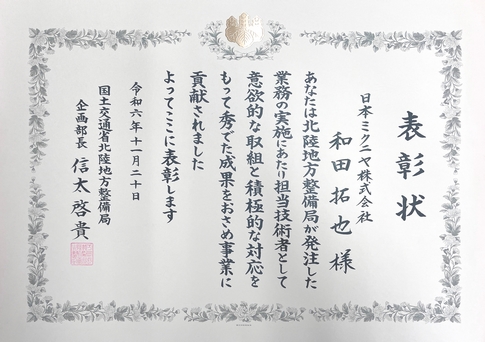 表彰状
日本ミクニヤ株式会社
和田拓也様
あなたは北陸地方整備局が発注した
業務の実施にあたり担当技術者として
意欲的な取組と積極的な対応を
もって秀でた成果をおさめ事業に
貢献されました
よってここに表彰します
令和六年十一月二十日
国土交通省北陸地方整備局
企画部長 信太啓貴